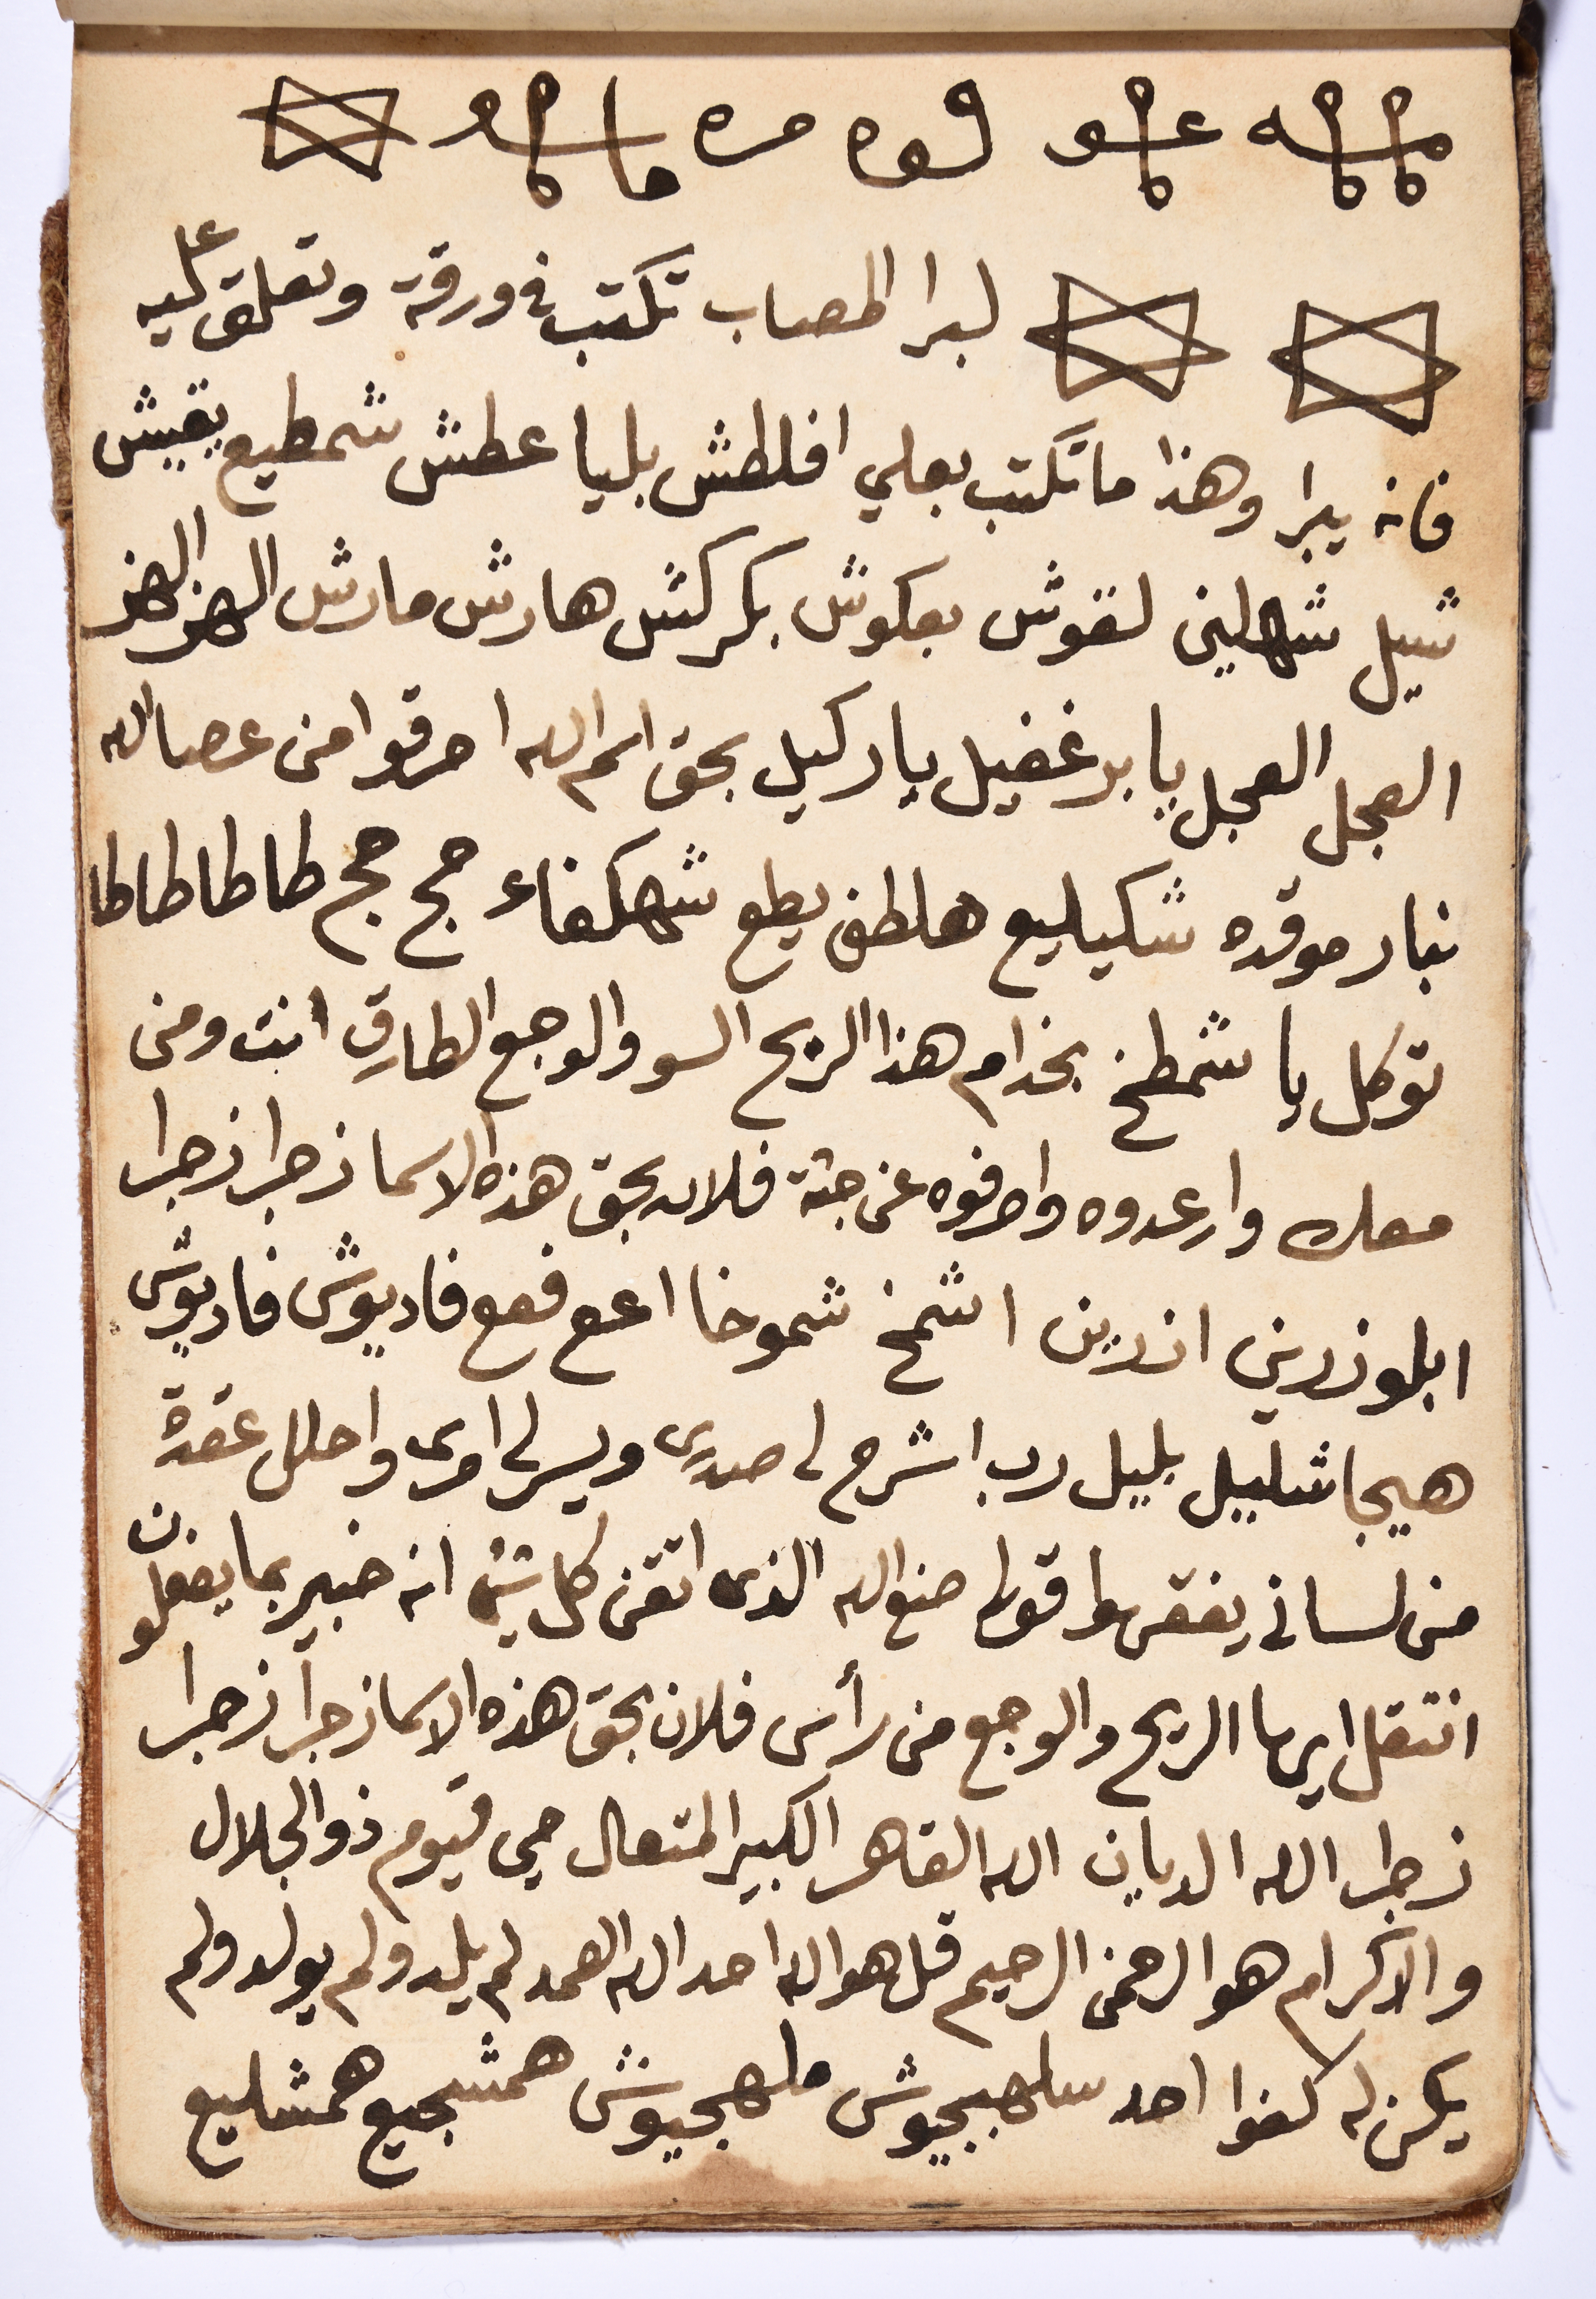 لبرا المصاب تكتب في ورقة وتعلق عليه
فانه يبرا وهذا ما تكتب بعلي افلطش بليا عطش شمطيع بقيش
شيل شهلين لقوش بعكوش بكركش هارش مارش الهز الهز
العجل العجل يا برغفيل يا ركيل بحق اسم الله احرقوا من عصا الله
بنار موقده شكيليع هلطف يطع شهكفاء حج حج طا طا طا طا
توكل يا شمطخ بخدام هذا الريح السو والوجع الطارق انت ومن
معك وارعدوه واصرفوه عن جثة فلان بحق هذه الاسما زجرا زجرا
ابلوزرين ازرين اشمخ شموخا اعع فعع فاديوش فاديوش
هيجا شليل بليل رب اشرح لي صدري ويسر لي امري واحلل عقدة
من لساني يفقهوا قولي صنع الله الذي اتقن كل شيء انه خبير بما يفعلون
انتقل ايها الريح والوجع من رأس فلان بحق هذه الاسما زجرا زجرا
زجر الله الديان الله القاهر الكبير المتعال حي قيوم ذو الجلال
والاكرام هو الرحمن الرحيم قل هو الله احد الله الصمد لم يلد ولم يولد ولم
يكن له كفوا احد سلهبجيوش ملهجيوش همشجيع همشليع